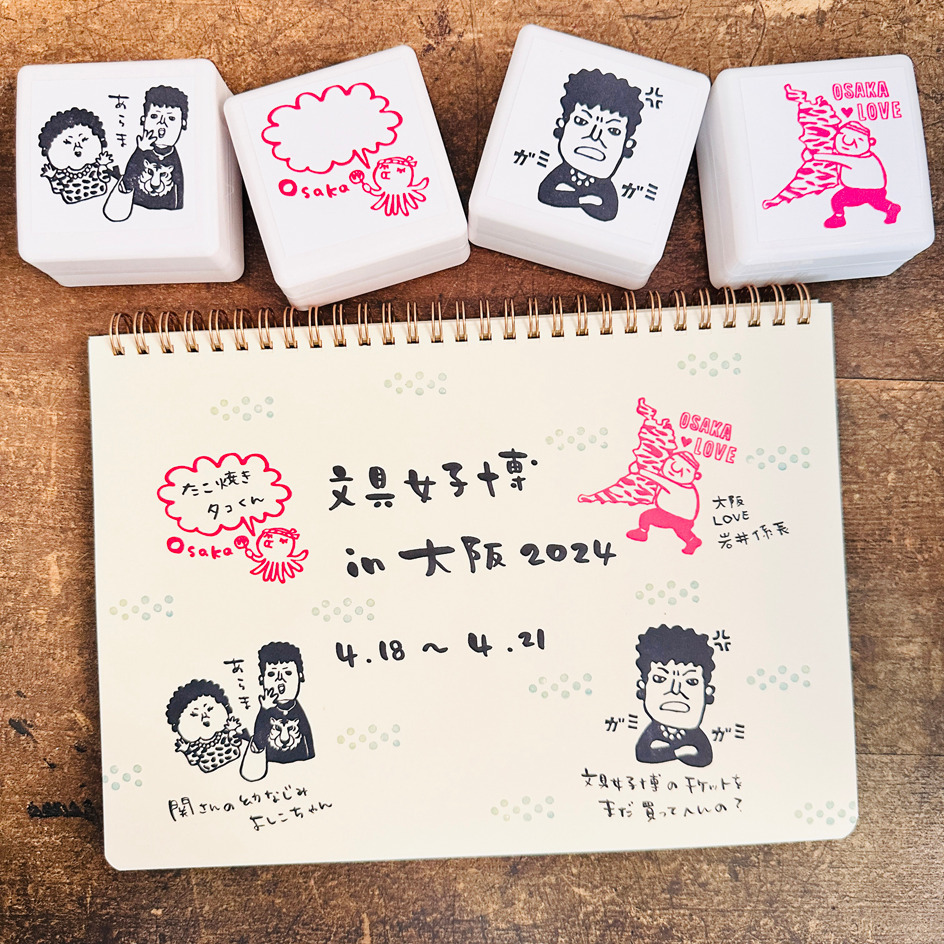 あらま
Osaka
ガミ
ガミ
OSAKA
LOVE
たこ焼き
タコくん
Osaka
文具女子博
in 大阪 2024
4.18 〜 4.21
OSAKA
LOVE
大阪
LOVE
岩井係長
あらま
関さんの幼なじみ
よしこちゃん
ガミ
ガミ
文具女子博のチケットを
まだ買ってへんの?